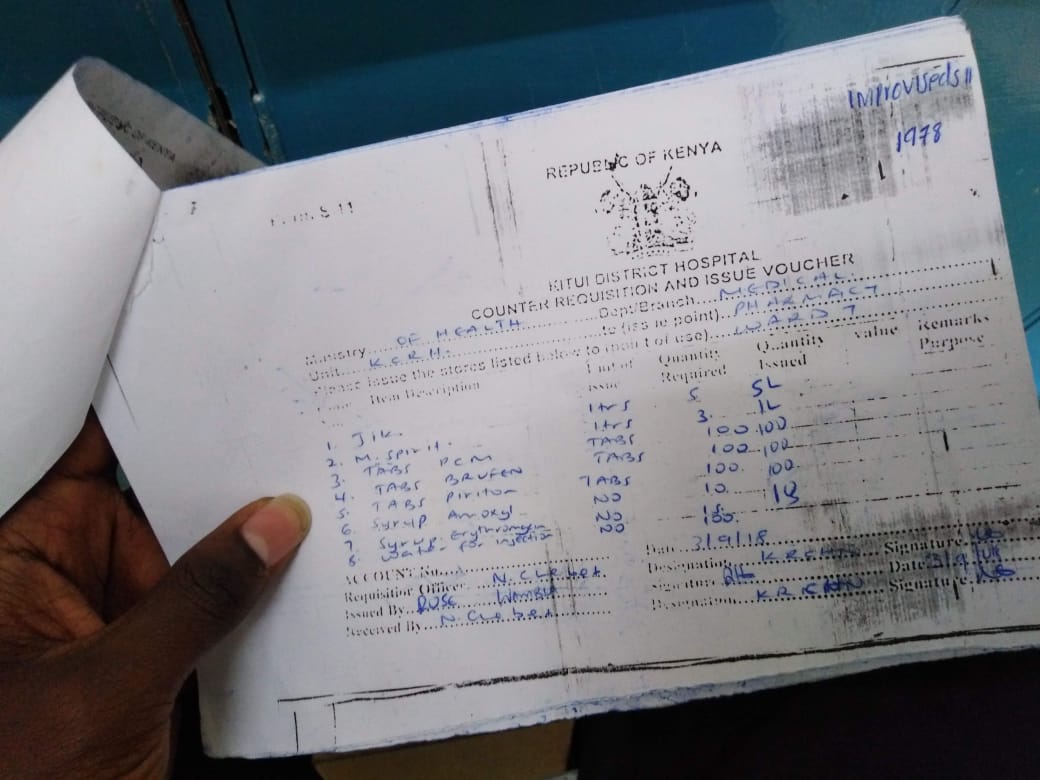 Improviseds 11
1978
S 11
REPUBLIC OF KENYA
KITUI DISTRICT HOSPITAL
COUNTER REQUISITION AND ISSUE VOUCHER
Ministry OF HEALTH Dept/Branch MEDICAL
Unit K.C.R.H. to (issue point) PHARMACY
Please issue the stores listed below to (point of use) WARD 7
Item Description Unit of Issue Quantity Required Quantity Issued value Remarks Purpose
1. Jik ltrs 5 5L
2. M. Spirit. ltrs 3. 1L
3. TABS PCM TABS 100 100
4. TABS BRUFEN TABS 100 100
5. TABS Piriton TABS 100 100
6. Syrup Amoxyl NO 10 18
7. Syrup Erythromycin NO
8. Water for injection NO 100.
ACCOUNT No. Date 3/9/18
Requisition Officer Designation Signature
Issued By ROSE Signature Date 3/9/18
Received By Designation Signature